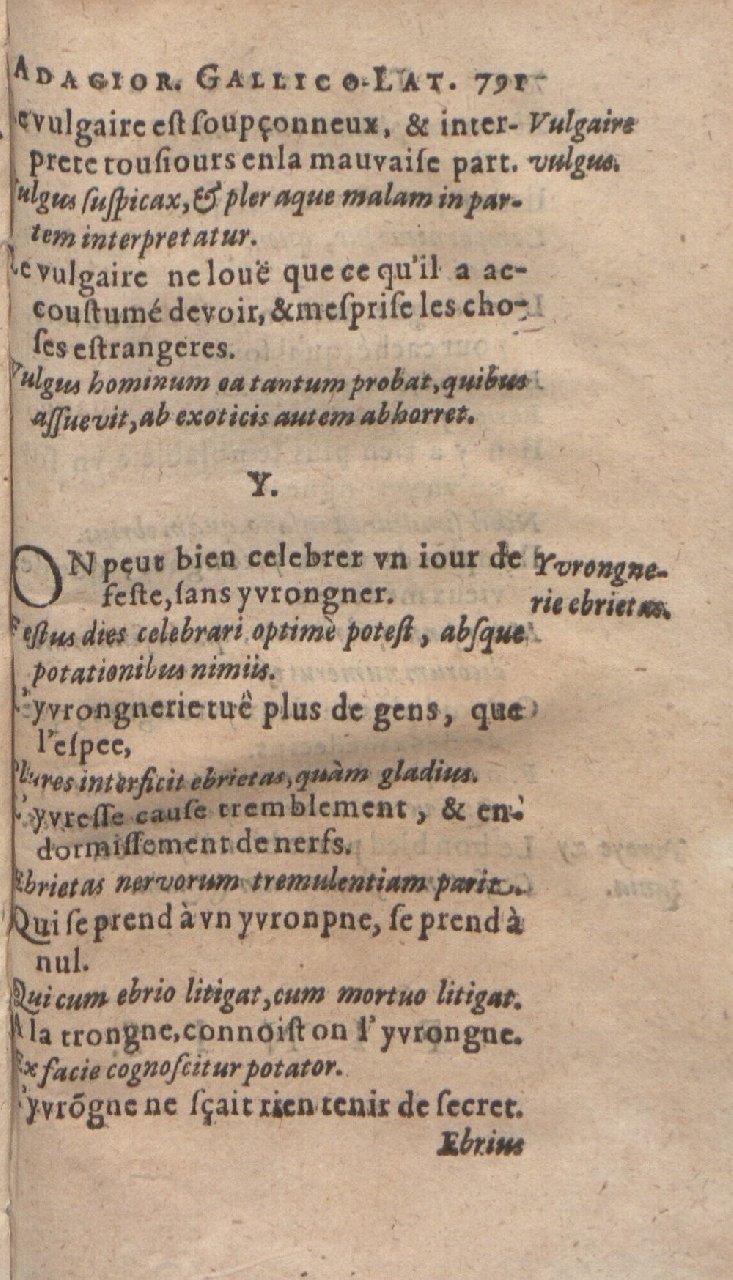 ADAGIOR. GALLICO-LAT. 791
Le vulgaire est soupçonneux, & inter- Vulgaire
prete tousiours enla mauvaise part. vulgus.
Vulgus suspicax, & pleraque malam in par-
tem interpretatur.
Le vulgaire ne louë que ce qu'il a ac-
coustumé devoir, & mesprise les cho-
ses estrangeres.
Vulgus hominum ea tantum probat, quibus
assuevit, ab exoticis autem abhorret.
Y.
ON peut bien celebrer vn iour de Yvrongne-
feste, sans yvrongner. rie ebrietas.
Festus dies celebrari optimè potest, absque
potationibus nimiis.
L'yvrongnerie tuë plus de gens, que
l'espee,
Plures interficit ebrietas, quàm gladius.
L'yvresse cause tremblement, & en-
dormissement de nerfs.
Ebrietas nervorum tremulentiam parit.
Qui se prend à vn yvronpne, se prend à
nul.
Qui cum ebrio litigat, cum mortuo litigat.
A la trongne, connoist on l'yvrongne.
Ex facie cognoscitur potator.
L'yvrõgne ne sçait rien tenir de secret.
Ebrius